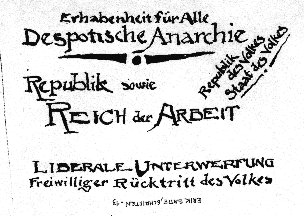 Erhabenheit für Alle
Despotische Anarchie
Republik sowie
REICH der ARBEIT
Republik
des Volkes
Staat des Volkes!
LIBERALE UNTERWERFUNG
Freiwilliger Rücktritt des Volkes
ERIK SATIE